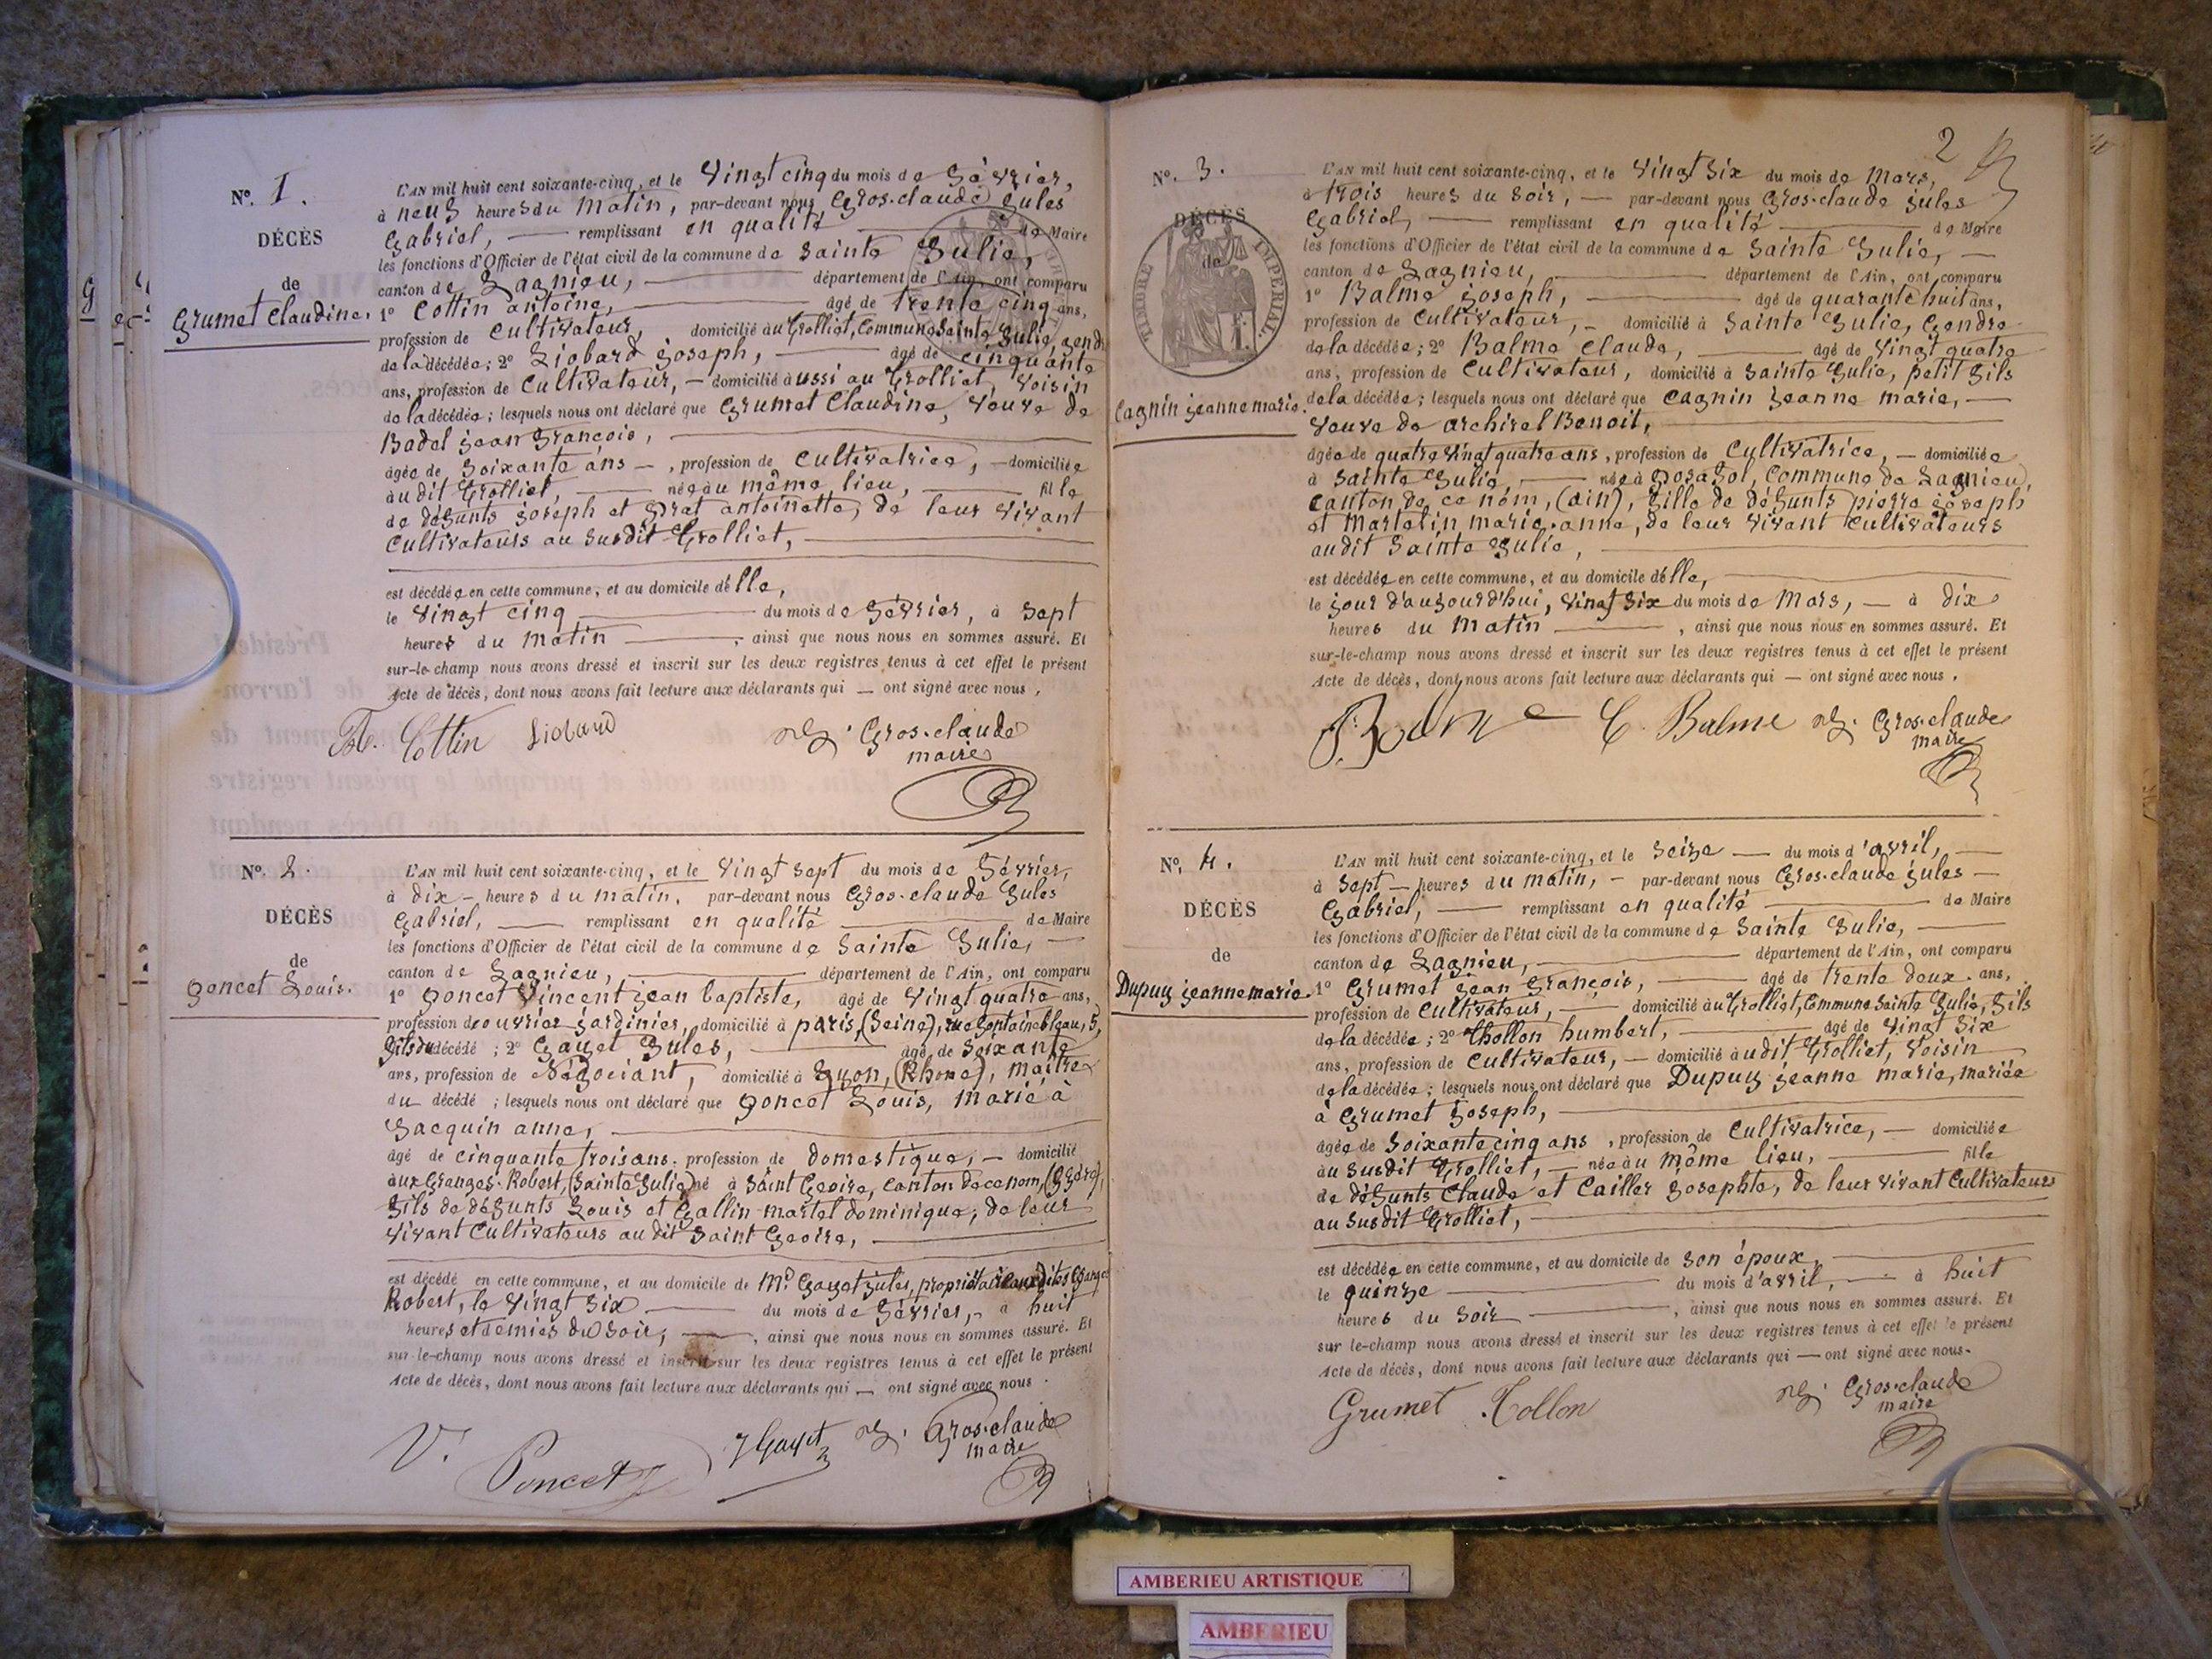 Nº. 1.
DÉCÈS
de
Grumet Claudine.
L'AN mil huit cent soixante-cinq, et le vingt cinq du mois de février,
à neuf heures du matin, par-devant nous Gros-claude jules
Gabriel, remplissant en qualité de Maire
les fonctions d'Officier de l'état civil de la commune de Sainte Julie,
canton de Lagnieu, département de l'Ain, ont comparu
1º Cottin antoine, âgé de trente cinq ans,
profession de Cultivateur, domicilié au Trolliet, Commune Sainte Julie, gendre
de la décédée; 2º Liobard joseph, âgé de cinquante
ans, profession de Cultivateur, domicilié aussi au Trolliet, voisin
de la décédée; lesquels nous ont déclaré que Grumet Claudine, veuve de
Badel jean françois,
âgée de Soixante ans, profession de Cultivatrice, domiciliée
au dit Trolliet, née au même lieu, fille
de défunts joseph et antoinette, de leur vivant
Cultivateurs au susdit Trolliet,
est décédée en cette commune, et au domicile d'elle,
le vingt cinq du mois de février, à sept
heures du matin, ainsi que nous nous en sommes assuré. Et
sur-le-champ nous avons dressé et inscrit sur les deux registres tenus à cet effet le présent
Acte de décès, dont nous avons fait lecture aux déclarants qui — ont signé avec nous.
Cottin Liobard Gros-claude
maire
Nº. 2.
DÉCÈS
de
poncet Louis.
L'AN mil huit cent soixante-cinq, et le vingt sept du mois de février,
à dix heures du matin, par-devant nous Gros-claude jules
Gabriel, remplissant en qualité de Maire
les fonctions d'Officier de l'état civil de la commune de Sainte Julie,
canton de Lagnieu, département de l'Ain, ont comparu
1º poncet Vincent jean baptiste, âgé de vingt quatre ans,
profession d'ouvrier jardinier, domicilié à paris, (Seine), rue fontainebleau, 5,
fils du décédé; 2º Gayet Jules, âgé de soixante
ans, profession de Négociant, domicilié à Lyon, (Rhone), maître
du décédé; lesquels nous ont déclaré que poncet Louis, marié à
Jacquin anne,
âgé de cinquante trois ans, profession de domestique, domicilié
aux Granges-Robert, (Sainte Julie) né à Saint Geoire, canton de ce nom, (Isère),
fils de défunts Louis et Gallin-martel dominique, de leur
vivant Cultivateurs au dit Saint Geoire,
est décédé en cette commune, et au domicile de Mr. Gayet jules, propriétaire auxdites Granges
Robert, le vingt six du mois de février, à huit
heures et demies du soir, ainsi que nous nous en sommes assuré. Et
sur-le-champ nous avons dressé et inscrit sur les deux registres tenus à cet effet le présent
Acte de décès, dont nous avons fait lecture aux déclarants qui — ont signé avec nous.
V. Poncet J Gayet Gros-claude
maire
2
Nº. 3.
DÉCÈS
de
TIMBRE IMPÉRIAL
Cagnin jeanne marie.
L'AN mil huit cent soixante-cinq, et le vingt six du mois de Mars,
à trois heures du soir, par-devant nous Gros-claude jules
Gabriel, remplissant en qualité de Maire
les fonctions d'Officier de l'état civil de la commune de Sainte Julie,
canton de Lagnieu, département de l'Ain, ont comparu
1º Balme joseph, âgé de quarante huit ans,
profession de Cultivateur, domicilié à Sainte Julie, Gendre
de la décédée; 2º Balme Claude, âgé de vingt quatre
ans, profession de Cultivateur, domicilié à Sainte Julie, petit fils
de la décédée; lesquels nous ont déclaré que Cagnin jeanne marie,
veuve de archirel Benoit,
âgée de quatre vingt quatre ans, profession de Cultivatrice, domiciliée
à Sainte Julie, née à posafol, Commune de Lagnieu,
Canton de ce nom, (ain), fille de défunts pierre joseph
et Martelin marie-anne, de leur vivant Cultivateurs
audit Sainte Julie,
est décédée en cette commune, et au domicile d'elle,
le jour d'aujourd'hui, vingt six du mois de Mars, à dix
heures du matin, ainsi que nous nous en sommes assuré. Et
sur-le-champ nous avons dressé et inscrit sur les deux registres tenus à cet effet le présent
Acte de décès, dont nous avons fait lecture aux déclarants qui — ont signé avec nous.
Balme C. Balme Gros-claude
maire
Nº. 4.
DÉCÈS
de
Dupuy jeanne marie.
L'AN mil huit cent soixante-cinq, et le seize du mois d'avril,
à sept heures du matin, par-devant nous Gros-claude jules
Gabriel, remplissant en qualité de Maire
les fonctions d'Officier de l'état civil de la commune de Sainte Julie,
canton de Lagnieu, département de l'Ain, ont comparu
1º Grumet jean françois, âgé de trente deux ans,
profession de Cultivateur, domicilié au Trolliet, Commune Sainte Julie, fils
de la décédée; 2º Thollon humbert, âgé de vingt six
ans, profession de Cultivateur, domicilié audit Trolliet, voisin
de la décédée; lesquels nous ont déclaré que Dupuy jeanne marie, mariée
à Grumet joseph,
âgée de Soixante cinq ans, profession de Cultivatrice, domiciliée
au susdit Trolliet, née au même lieu, fille
de défunts Claude et Cailler josephte, de leur vivant Cultivateurs
au susdit Trolliet,
est décédée en cette commune, et au domicile de son époux,
le quinze du mois d'avril, à huit
heures du soir, ainsi que nous nous en sommes assuré. Et
sur le-champ nous avons dressé et inscrit sur les deux registres tenus à cet effet le présent
Acte de décès, dont nous avons fait lecture aux déclarants qui — ont signé avec nous.
Grumet Tollon Gros-claude
maire
AMBERIEU ARTISTIQUE
AMBERIEU